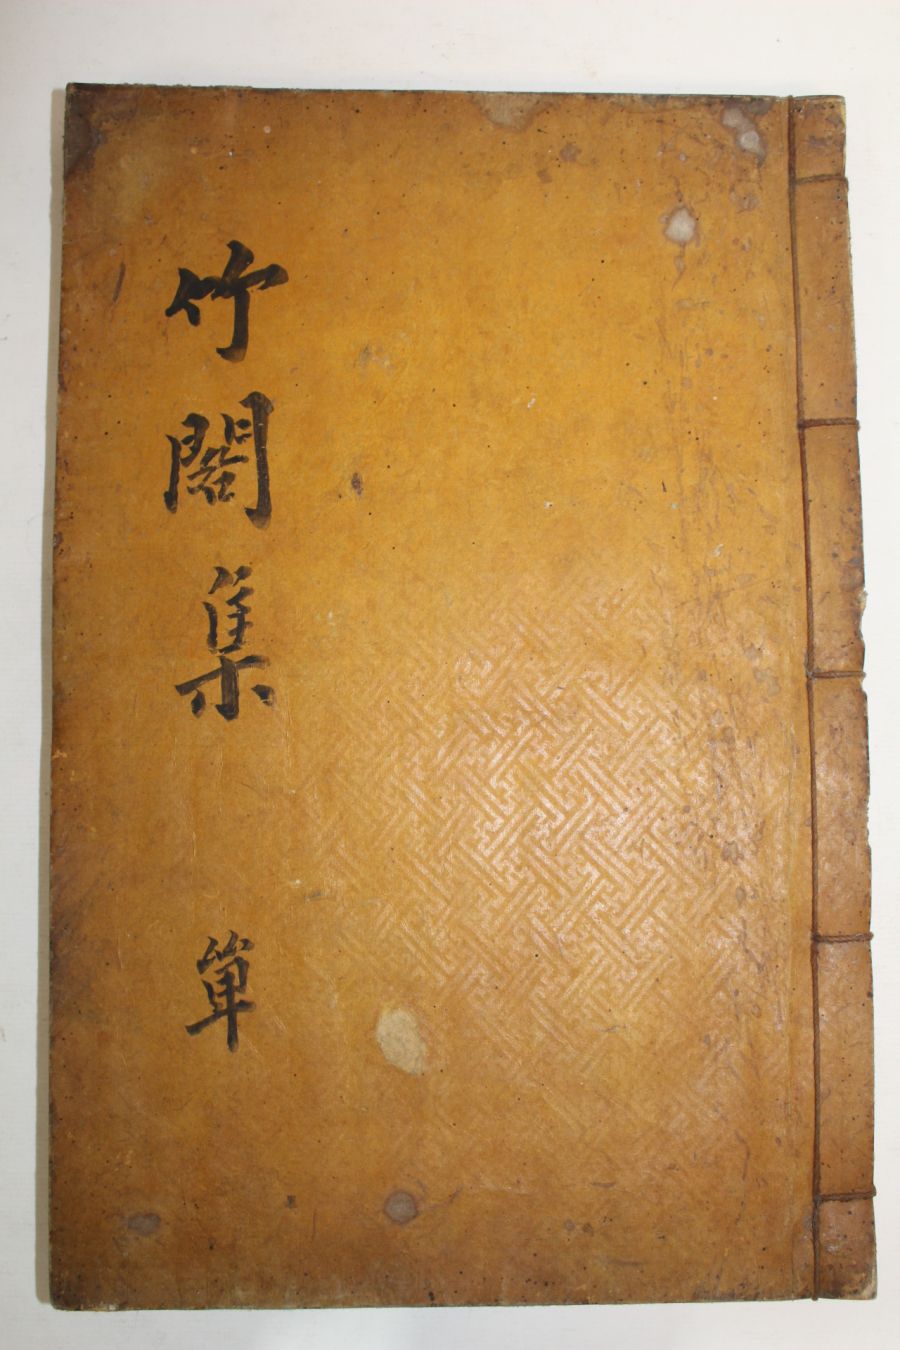 竹閣集
單